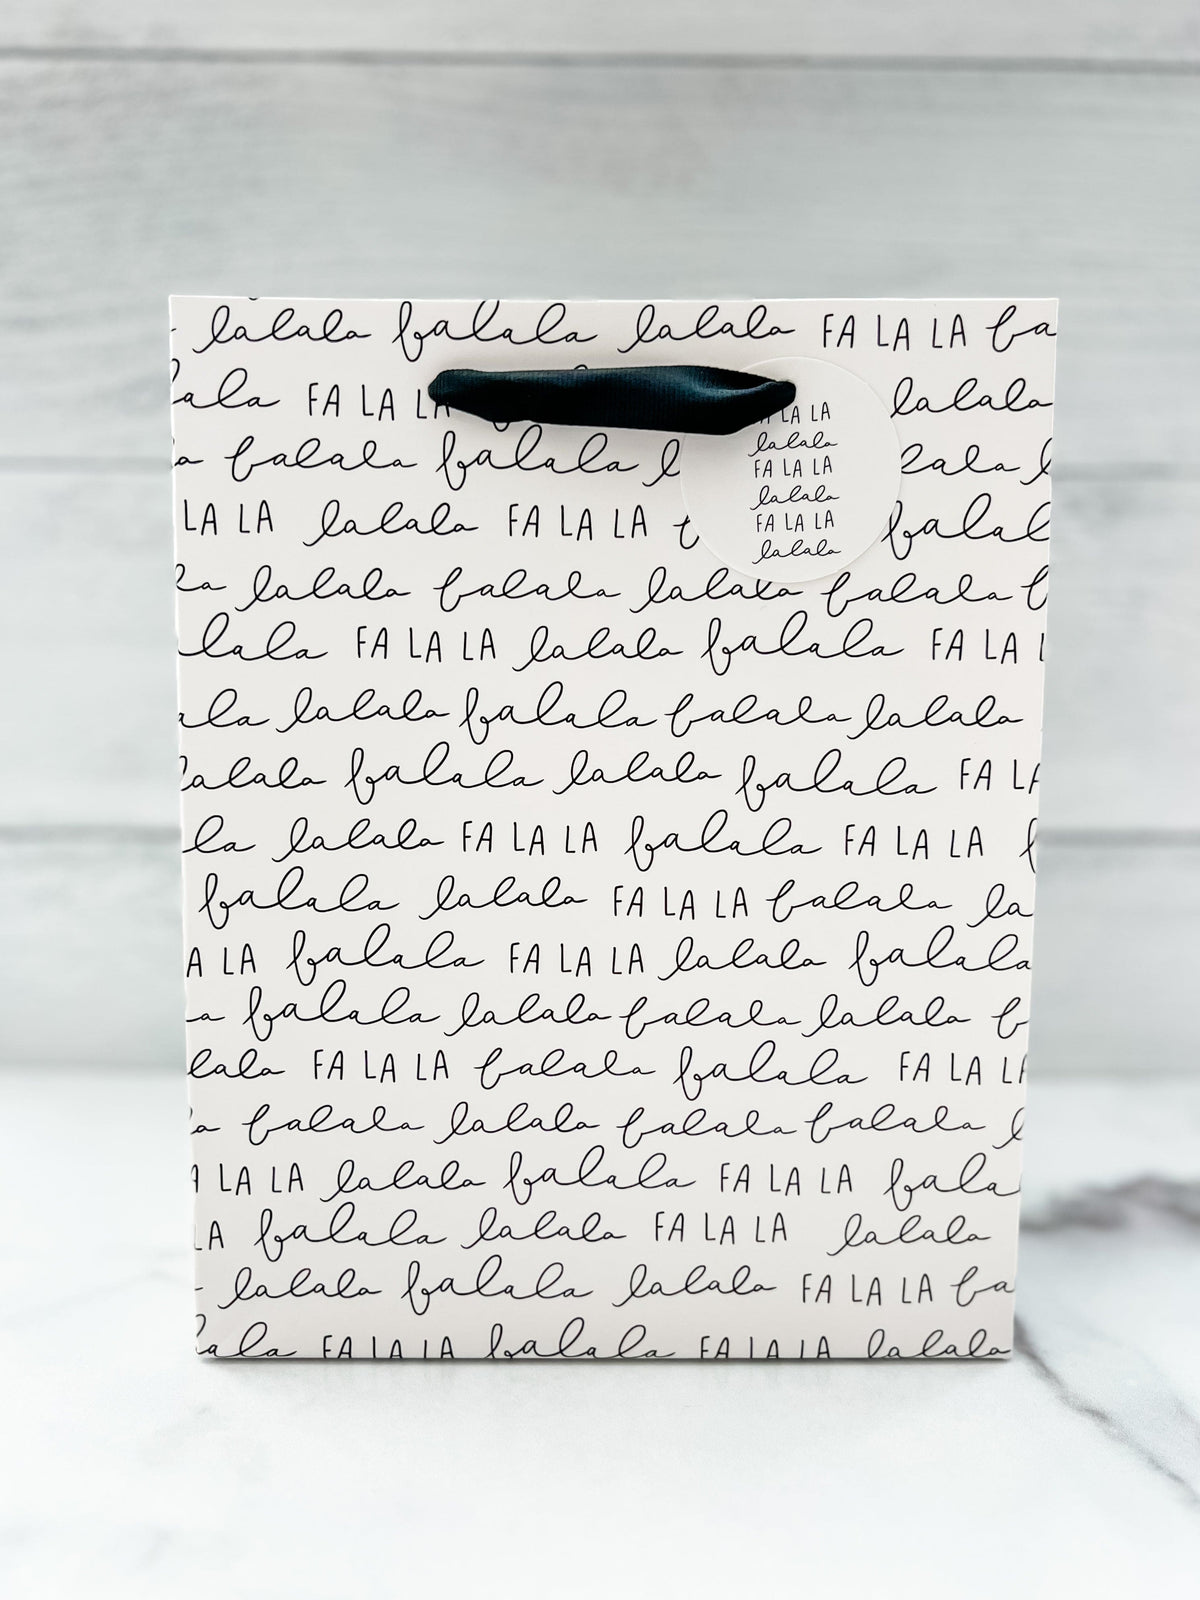 lalala falala lalala FA LA LA fa
ala FA LA LA lalala
a falala falala lala l
LA LA lalala FA LA LA falal
la lalala falala lalala falala
lala FA LA LA lalala falala FA LA L
ala lalala falala falala lalala
lalala falala lalala falala FA LA
la lalala FA LA LA falala FA LA LA f
falala lalala FA LA LA falala la
A LA falala FA LA LA lalala falala
a falala lalala falala lalala f
lala FA LA LA falala falala FA LA LA
a falala lalala falala falala l
A LA LA lalala falala FA LA LA fala
LA falala lalala FA LA LA lalala
lalala falala lalala FA LA LA fa
lala FA LA LA falala FA LA LA lalala
LA LA
lalala
FA LA LA
lalala
FA LA LA
lalala